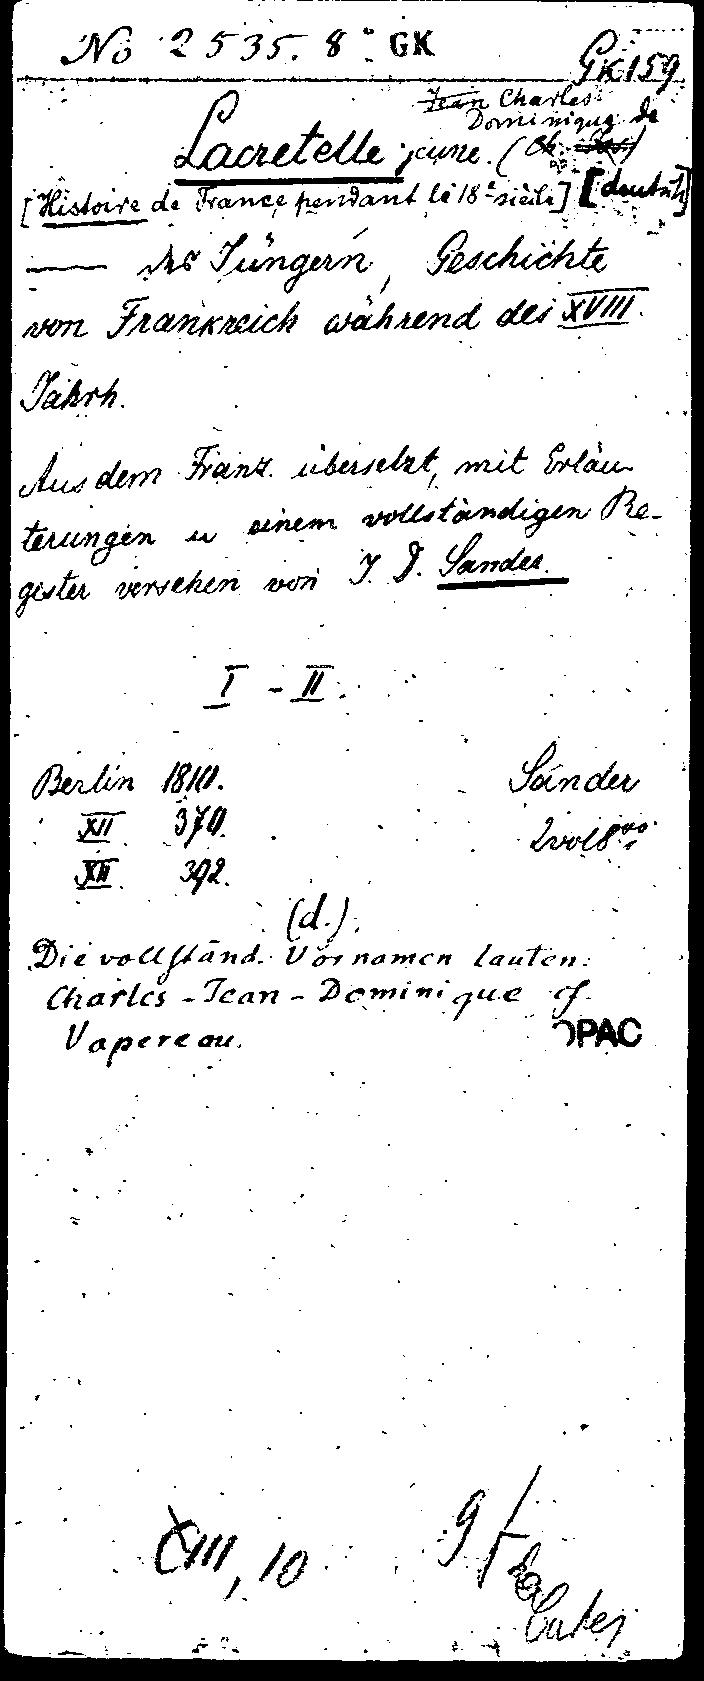 No 2535. 8° GK
GK 159
Jean Charles
Dominique de
Lacretelle jeune. (Ch.
[Histoire de France pendant le 18e siècle] [deutsch]
— des Jüngern, Geschichte
von Frankreich während des XVIII.
Jahrh.
Aus dem Franz. übersetzt, mit Erläu-
terungen u einem vollständigen Re-
gister versehen von J. D. Sander.
I - II.
Berlin 1810. Sander
XII 370. 2 vol 8vo.
XII. 392.
(d.).
Die vollständ. Vornamen lauten:
Charles-Jean-Dominique cf.
Vapereau.
OPAC
XIII, 10